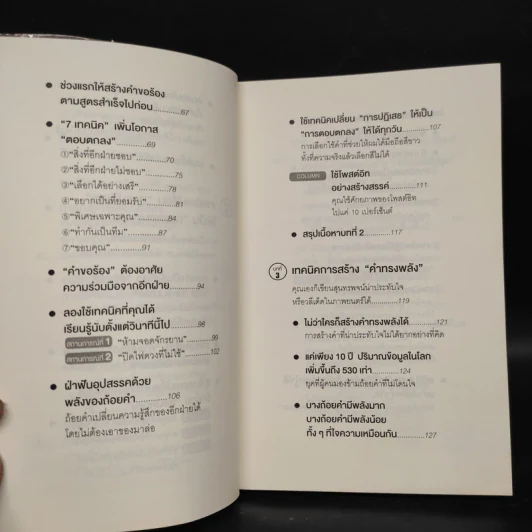 ● ช่วงแรกให้สร้างคำขอร้อง
ตามสูตรสำเร็จไปก่อน............67
● “7 เทคนิค” เพิ่มโอกาส
“ตอบตกลง”............69
①“สิ่งที่อีกฝ่ายชอบ”............70
②“สิ่งที่อีกฝ่ายไม่ชอบ”............75
③“เลือกได้อย่างเสรี”............78
④“อยากเป็นที่ยอมรับ”............81
⑤“พิเศษเฉพาะคุณ”............84
⑥“ทำกันเป็นทีม”............87
⑦“ขอบคุณ”............91
● “คำขอร้อง” ต้องอาศัย
ความร่วมมือจากอีกฝ่าย............94
● ลองใช้เทคนิคที่คุณได้
เรียนรู้นับตั้งแต่วินาทีนี้ไป............98
สถานการณ์ที่ 1 “ห้ามจอดจักรยาน”............99
สถานการณ์ที่ 2 “ปิดไฟดวงที่ไม่ใช้”............102
● ฝ่าฟันอุปสรรคด้วย
พลังของถ้อยคำ............106
ถ้อยคำเปลี่ยนความรู้สึกของอีกฝ่ายได้
โดยไม่ต้องเอาของมาล่อ
● ใช้เทคนิคเปลี่ยน “การปฏิเสธ” ให้เป็น
“การตอบตกลง” ให้ได้ทุกวัน............107
การเลือกใช้คำที่ช่วยให้ผมได้มือถือสีขาว
ทั้งที่ความจริงแล้วเลือกสีไม่ได้
COLUMN ใช้โพสต์อิท
อย่างสร้างสรรค์............111
คุณใช้ศักยภาพของโพสต์อิท
ไปแค่ 10 เปอร์เซ็นต์
● สรุปเนื้อหาบทที่ 2............117
บทที่ 3 เทคนิคการสร้าง “คำทรงพลัง”
คุณเองก็เขียนสุนทรพจน์น่าประทับใจ
หรือวลีเด็ดในภาพยนตร์ได้............119
● ไม่ว่าใครก็สร้างคำทรงพลังได้............121
การสร้างคำที่น่าประทับใจไม่ได้ยากอย่างที่คิด
● แค่เพียง 10 ปี ปริมาณข้อมูลในโลก
เพิ่มขึ้นถึง 530 เท่า............124
ยุคที่ผู้คนมองข้ามถ้อยคำที่ไม่โดนใจ
● บางถ้อยคำมีพลังมาก
บางถ้อยคำมีพลังน้อย
ทั้ง ๆ ที่ใจความเหมือนกัน............127